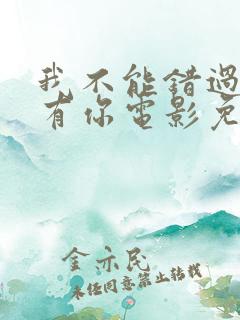 我不能错过
有你电影免
金亦民
未经同意禁止转载